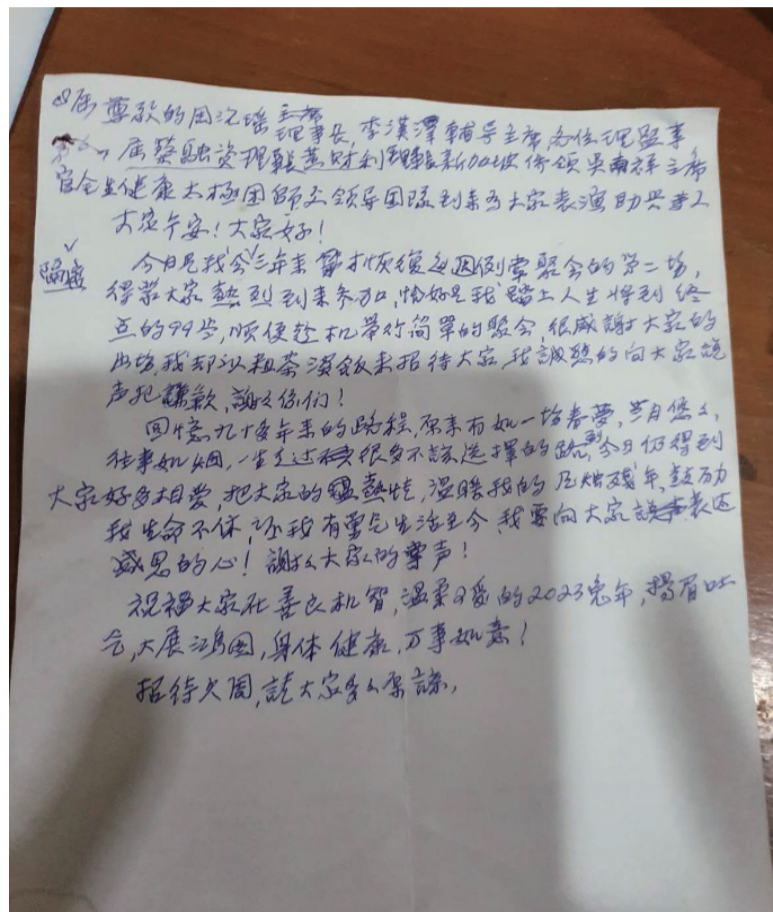 8届尊敬的周沉瑶主席理事长,李漢澤輔导主席各位理监事
届蔡融资理長黄财利理事長新加坡侨领吴南祥主席
官全生健康太极团师父领导团隊到来为大家表演助兴
大家午安!大家好!
今日是我会三年来才恢復例常聚会的第二场,
得蒙大家熱烈到来参加,恰好是我踏上人生将到终
点的99岁,顺便趁机举行简單的聚会,很感謝大家的
出场,我却以粗茶淡飯来招待大家,我誠懇的向大家说
声抱謙歉,謝々你們!
回憶九十多年来的路程,原来有如一场春夢,岁月悠々,
往事如烟,一生走过很多不該选擇的路,今日仍得到
大家好多相爱,把大家的温熱情,温賠我的风烛残年,鼓励
我生命不休,还我有重見生活至今,我要向大家表达
感恩的心!謝々大家的掌声!
祝福大家在善良机智,温柔可爱的2023兔年,揚眉吐
气,大展鴻图,身体健康,万事如意!
招待欠周,請大家多々原諒,